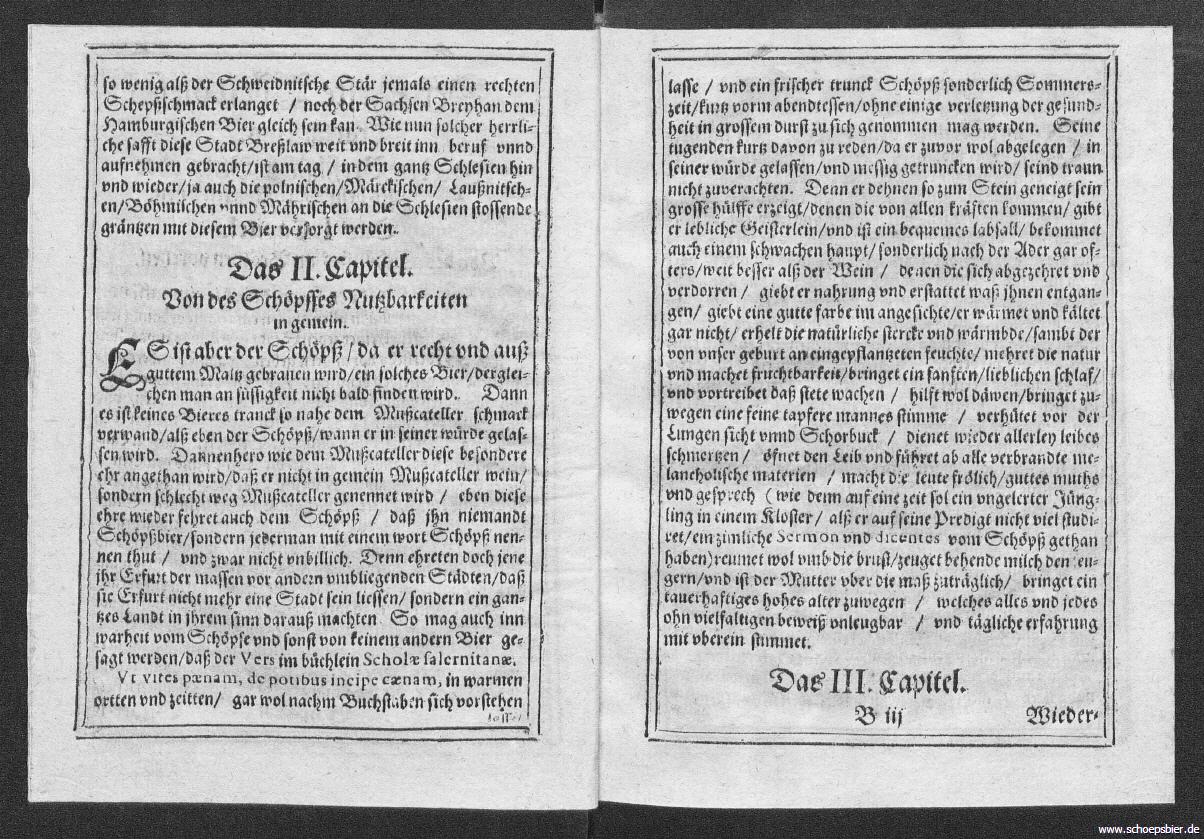 so wenig alß der Schweidnitsche Stär jemals einen rechten
Schepßschmack erlanget / noch der Sachsen Breyhan dem
Hamburgischen Bier gleich sein kan. Wie nun solcher herrli-
che safft diese Stadt Breßlaw weit vnd breit inn beruf vnnd
aufnehmen gebracht/ist am tag / indem gantz Schlesien hin
vnd wieder/ja auch die polnischen/Märckischen/ Laußnitsch-
en/Böhmischen vnnd Mährischen an die Schlesien stossende
gräntzen mit diesem Bier versorgt werden.
Das II. Capitel.
Von des Schöpsses Nutzbarkeiten
in gemein.
ES ist aber der Schöpß/da er recht vnd auß
guttem Maltz gebrauen wird/ein solches Bier/derglei-
chen man an süssigkeit nicht bald finden wird. Dann
es ist keines Bieres tranck so nahe dem Mußcateller schmack
verwand/alß eben der Schöpß/wann er in seiner würde gelas-
sen wird. Dannenhero wie dem Mußcateller diese besondere
ehr angethan wird/daß er nicht in gemein Mußcateller wein/
sondern schlecht weg Mußcateller genennet wird / eben diese
ehre wiederfehret auch dem Schöpß / daß jhn niemandt
Schöpßbier/sondern jederman mit einem wort Schöpß nen-
nen thut / vnd zwar nicht vnbillich. Denn ehreten doch jene
jhr Erfurt der massen vor andern vmbliegenden Städten/daß
sie Erfurt nicht mehr eine Stadt sein liessen/sondern ein gan-
tzes Landt in jhrem sinn darauß machten. So mag auch inn
warheit vom Schöpse vnd sonst von keinem andern Bier ge-
sagt werden/daß der Vers im büchlein Scholæ salernitanæ.
Vt vites pœnam, de potibus incipe cœnam, in warmen
ortten vnd zeitten/ gar wol nachm Buchstaben sich vorstehen
lasse/
lasse / vnd ein frischer trunck Schöpß sonderlich Sommers-
zeit/kurtz vorm abendtessen/ohne einige verletzung der gesund-
heit in grossem durst zu sich genommen mag werden. Seine
tugenden kurtz davon zu reden/da er zuvor wol abgelegen / in
seiner würde gelassen/vnd messig getruncken wird/ seind traun
nicht zuverachten. Denn er dehnen so zum Stein geneigt sein
grosse hülffe erzeigt/denen die von allen kräften kommen/ gibt
er lebliche Geisterlein/vnd ist ein bequemes labsall/ bekommet
auch einem schwachen haupt/sonderlich nach der Ader gar of-
ters/weit besser alß der Wein / denen die sich abgezehret vnd
verdorren / giebt er nahrung vnd erstattet waß jhnen entgan-
gen/ giebt eine gutte farbe im angesichte/er wärmet vnd kältet
gar nicht/ erhelt die natürliche stercke vnd wärmbde/sambt der
von vnser geburt an eingepflantzeten feuchte/ mehret die natur
vnd machet fruchtbarkeit/bringet ein sanften/lieblichen schlaf/
vnd vortreibet daß stete wachen / hilft wol däwen/bringet zu-
wegen eine feine tapfere mannes stimme / verhütet vor der
Lungen sücht vnnd Schorbuck / dienet wieder allerley leibes
schmertzen / öfnet den Leib vnd führet ab alle verbrandte me-
lancholische materien / macht die leute frölich/guttes muths
vnd gesprech (wie denn auf eine zeit sol ein vngelerter Jüng-
ling in einem Kloster / alß er auf seine Predigt nicht viel studi-
ret/ein zimliche Sermon vnd dicentes vom Schöpß gethan
haben) reumet wol vmb die brust/zeuget behende milch den eu-
gern/vnd ist der Mutter vber die maß zuträglich/ bringet ein
tauerhaftiges hohes alter zuwegen / welches alles vnd jedes
ohn vielfaltigen beweiß vnleugbar / vnd tägliche erfahrung
mit vberein stimmet.
Das III. Capitel.
B iij Wieder-
www.schoepsbier.de